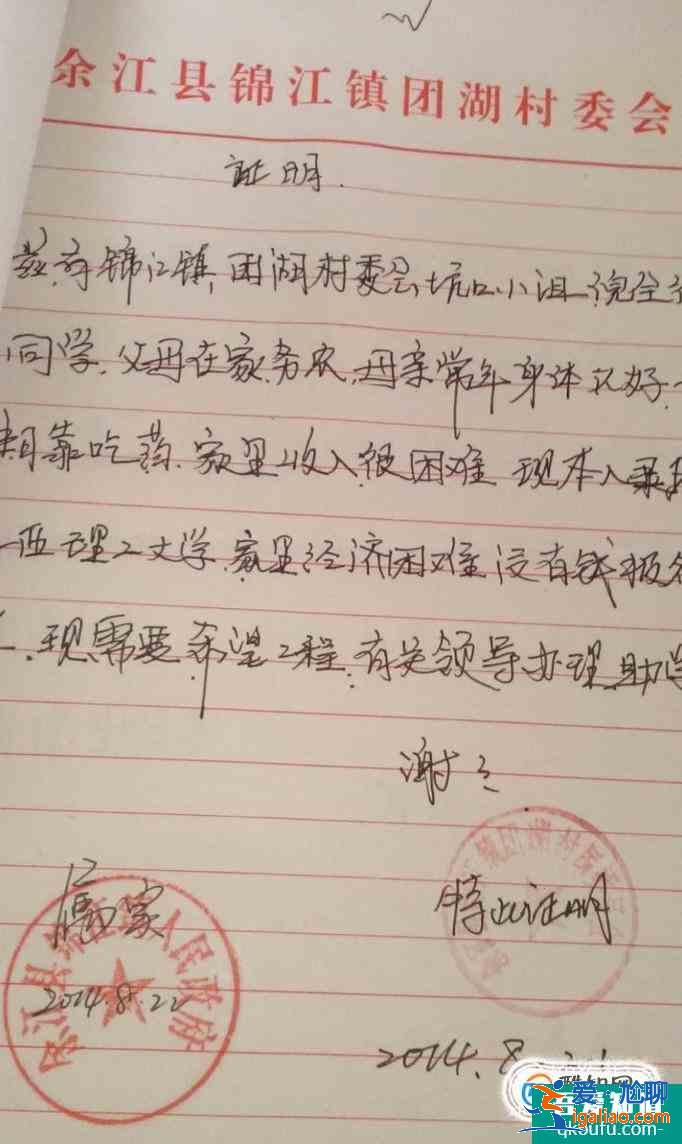 余江县锦江镇团湖村委会
证明.
兹有锦江镇团湖村委会坑口小组倪全
同学.父母在家务农,母亲常年身体不好.
期靠吃药.家里收入很困难 现本人录
西理工大学.家里经济困难没有钱报名
现需要希望工程.有关领导办理助学
谢谢
属实
特此证明
2014.8.22
2014.8.
江县锦江镇人民政府
镇团湖村
爱尴聊
igaliao.com